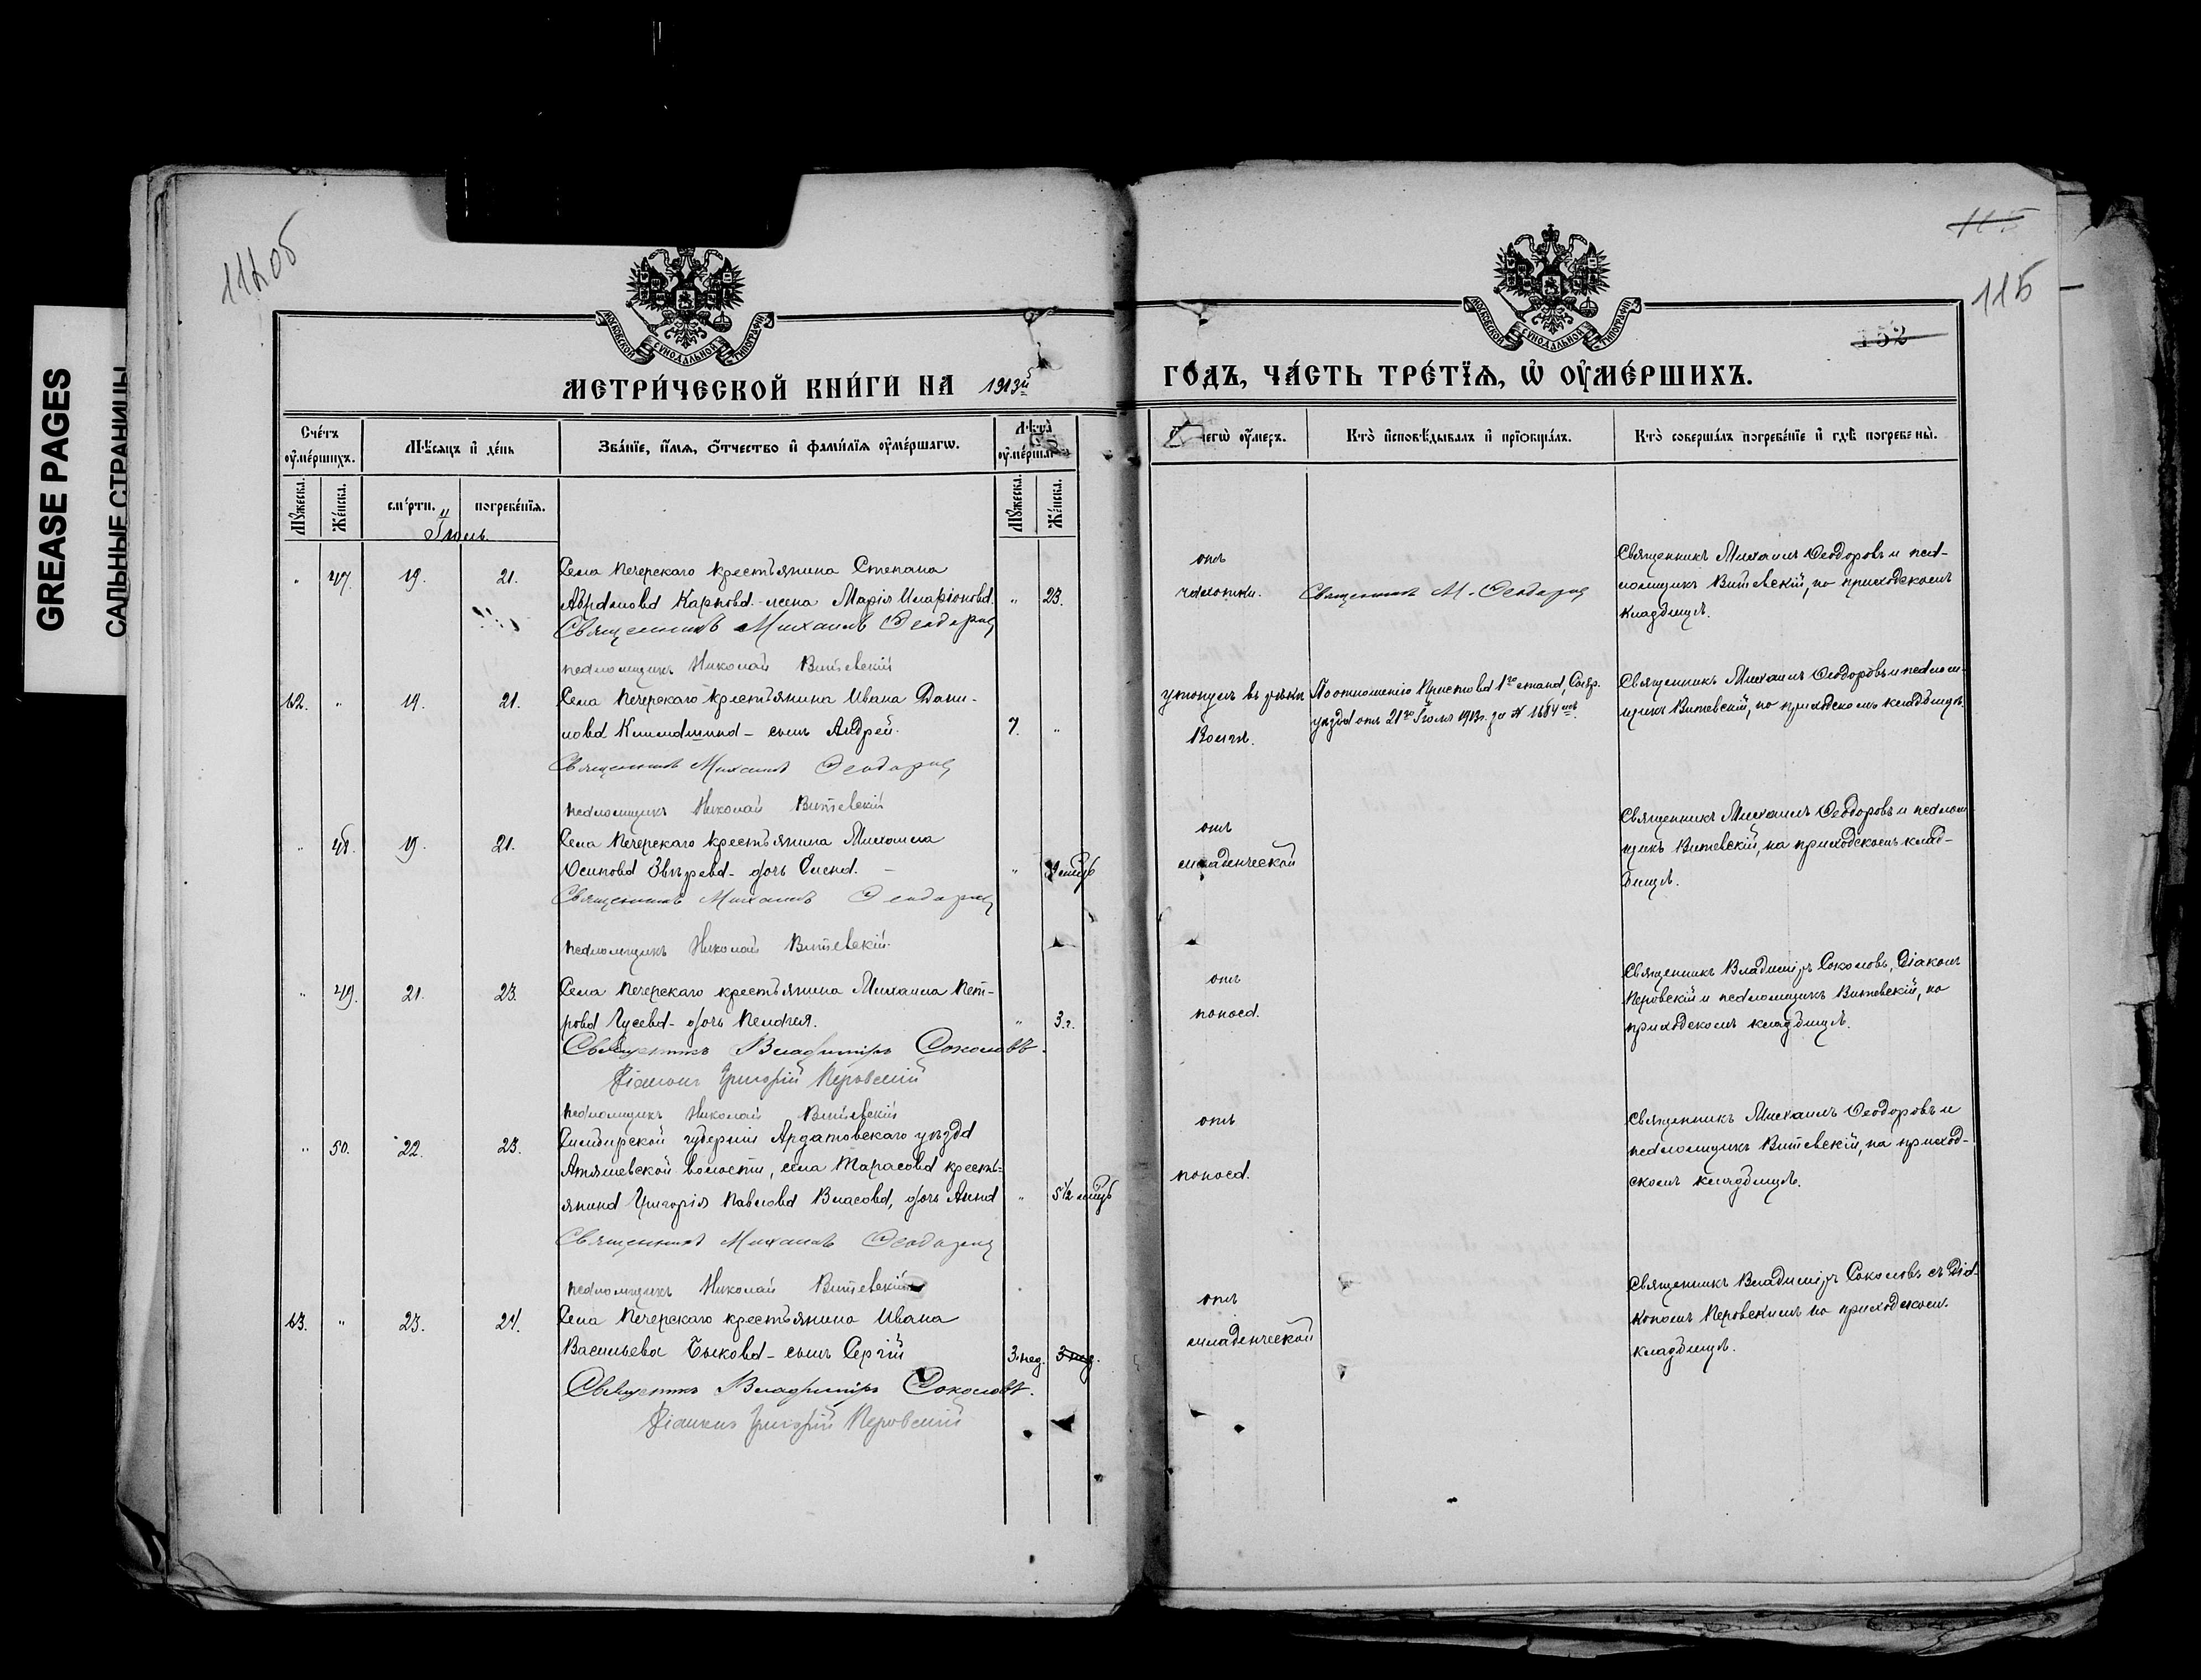 GREASE PAGES
САЛЬНЫЕ СТРАНИЦЫ
114об
115
115
152
МОСКОВСКОЙ СѴНОДАЛЬНОЙ ТИПОГРАФІИ
МОСКОВСКОЙ СѴНОДАЛЬНОЙ ТИПОГРАФІИ
МЕТРИ́ЧЕСКОЙ КНИ́ГИ НА 1913й ГО́ДЪ, ЧА́СТЬ ТРЕ́ТЇѦ, Ѡ҆ ОУ҆МЕ́РШИХЪ.
Сче́тъ оу҆ме́ршихъ.
Мѣ́сяцъ и҆ де́нь
Зва́нїе, и҆́мѧ, ѻ҆́тчество и҆ фамѝлїѧ оу҆ме́ршагѡ.
Лѣ́та оу҆ме́ршаг
чегѡ̀ оу҆́меръ.
Кто̀ и҆сповѣ́дывалъ и҆ прїѡбща́лъ.
Кто̀ соверша́лъ погребе́нїе и҆ гдѣ̀ погребены̀.
Мꙋ́жеска.
Же́нска.
сме́рти.
погребе́нїѧ.
Мꙋ́жеска.
Же́нска.
Іюль
" 47. 19. 21. Села Печерскаго крестьянина Степана
Абрамова Карпова - жена Марія Иларіонова. " 23.
Священникъ Михаилъ Ѳеодоровъ
псаломщикъ Николай Витевскій
отъ
чахотки.
Священникъ М. Ѳеодоровъ
Священникъ Михаилъ Ѳеодоровъ и псал-
ломщикъ Витевскій, на приходскомъ
кладбищѣ.
62. " 19. 21. Села Печерскаго крестьянина Ивана Дани-
лова - сынъ Андрей. 7. "
Священникъ Михаилъ Ѳеодоровъ
псаломщикъ Николай Витевскій
утонулъ въ рѣкѣ
Волгѣ.
По отношенію Пристава 1го стана, Сызр.
уѣзда отъ 21го Іюля 1913г. за № 1684мъ.
Священникъ Михаилъ Ѳеодоровъ и псалом-
щикъ Витевскій, на приходскомъ кладбищѣ.
" 48. 19. 21. Села Печерскаго крестьянина Михаила
Осипова Звѣрева - дочь Елена. "
Священникъ Михаилъ Ѳеодоровъ
псаломщикъ Николай Витевскій.
отъ
младенческой
Священникъ Михаилъ Ѳеодоровъ и псалом-
щикъ Витевскій, на приходскомъ клад-
бищѣ.
" 49. 21. 23. Села Печерскаго крестьянина Михаила Пет-
рова Гусева - дочь Пелагея. " 3 г.
Священникъ Владиміръ Соколовъ.
Діаконъ Григорій Перовскій
псаломщикъ Николай Витевскій
отъ
поноса.
Священникъ Владиміръ Соколовъ, Діаконъ
Перовскій и псаломщикъ Витевскій, на
приходскомъ кладбищѣ.
" 50. 22. 23. Симбирской губерніи Ардатовскаго уѣзда
Атяшевской волости, села Тарасова кресть-
янина Григорія Павлова Власова, дочь Анна " 5½ мѣц
Священникъ Михаилъ Ѳеодоровъ
псаломщикъ Николай Витевскій
отъ
поноса.
Священникъ Михаилъ Ѳеодоровъ и
псаломщикъ Витевскій, на приход-
скомъ кладбищѣ.
63. " 23. 24. Села Печерскаго крестьянина Ивана
Васильева Быкова - сынъ Сергій 3 нед. 3 нед.
Священникъ Владиміръ Соколовъ.
Діаконъ Григорій Перовскій
отъ
младенческой
Священникъ Владиміръ Соколовъ съ Діа-
кономъ Перовскимъ на приходскомъ
кладбищѣ.